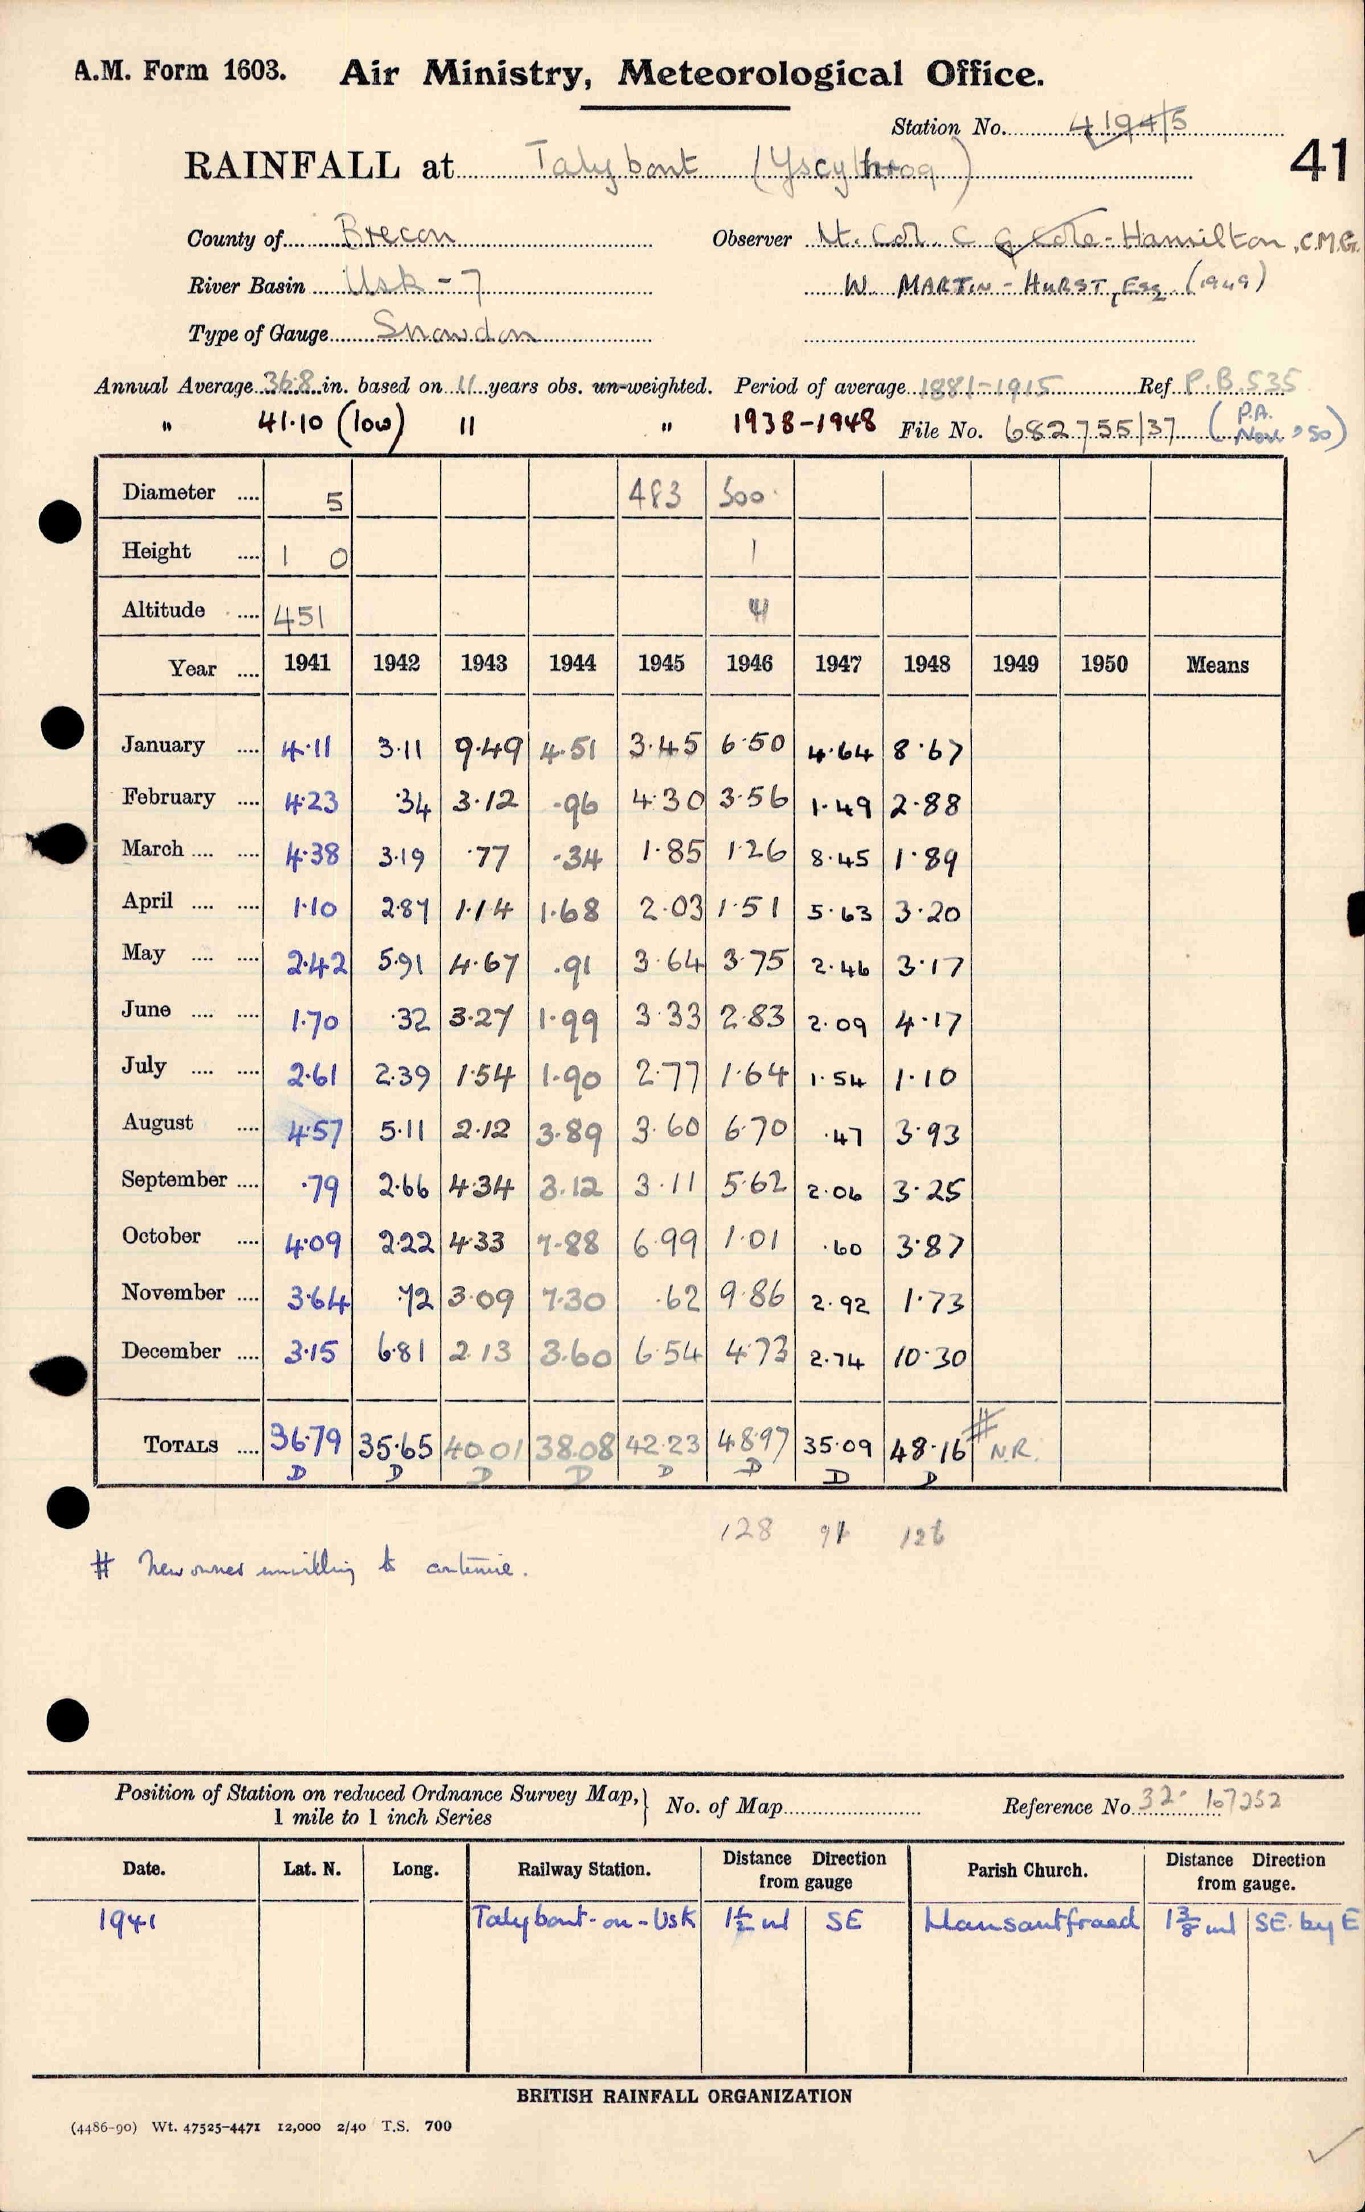 A.M. Form 1603. Air Ministry, Meteorological Office.
Station No. 4194/5
41
RAINFALL at Talybont (Yscylhrog)
County of Brecon Observer Lt. Col. C G Cole-Hamilton, C.M.G.
River Basin Usk - 7 W. MARTIN-HURST, Esq. (1949)
Type of Gauge Snowdon
Annual Average 36.8 in. based on 11 years obs. un-weighted. Period of average 1881-1915 Ref. P.B.535
" 41.10 (low) 11 " 1938-1948 File No. 682755/37 (P.A. Nov. '50)
Diameter .... 5 483 500
Height .... 1 0 1
Altitude .... 451
Year .... 1941 1942 1943 1944 1945 1946 1947 1948 1949 1950 Means
January .... 4.11 3.11 9.49 4.51 3.45 6.50 4.64 8.67
February .... 4.23 .34 3.12 .96 4.30 3.56 1.49 2.88
March .... .... 4.38 3.19 .77 .34 1.85 1.26 8.45 1.89
April .... .... 1.10 2.87 1.14 1.68 2.03 1.51 5.63 3.20
May .... .... 2.42 5.91 4.67 .91 3.64 3.75 2.46 3.17
June .... .... 1.70 .32 3.27 1.99 3.33 2.83 2.09 4.17
July .... .... 2.61 2.39 1.54 1.90 2.77 1.64 1.54 1.10
August .... 4.57 5.11 2.12 3.89 3.60 6.70 .47 3.93
September .... .79 2.66 4.34 3.12 3.11 5.62 2.06 3.25
October .... 4.09 2.22 4.33 7.88 6.99 1.01 .60 3.87
November .... 3.64 .72 3.09 7.30 .62 9.86 2.92 1.73
December .... 3.15 6.81 2.13 3.60 6.54 4.73 2.74 10.30
TOTALS .... 36.79 35.65 40.01 38.08 42.23 48.97 35.09 48.16 # N.R.
D D D D D D D D
128 91 126
# New owner unwilling to continue.
Position of Station on reduced Ordnance Survey Map, 1 mile to 1 inch Series } No. of Map Reference No. 32. 167252
Date. Lat. N. Long. Railway Station. Distance Direction from gauge Parish Church. Distance Direction from gauge.
1941 Talybont-on-Usk 1½ ml SE Llansantfraed 1⅜ ml SE. by E
BRITISH RAINFALL ORGANIZATION
(4486-90) Wt. 47525-4471 12,000 2/40 T.S. 700